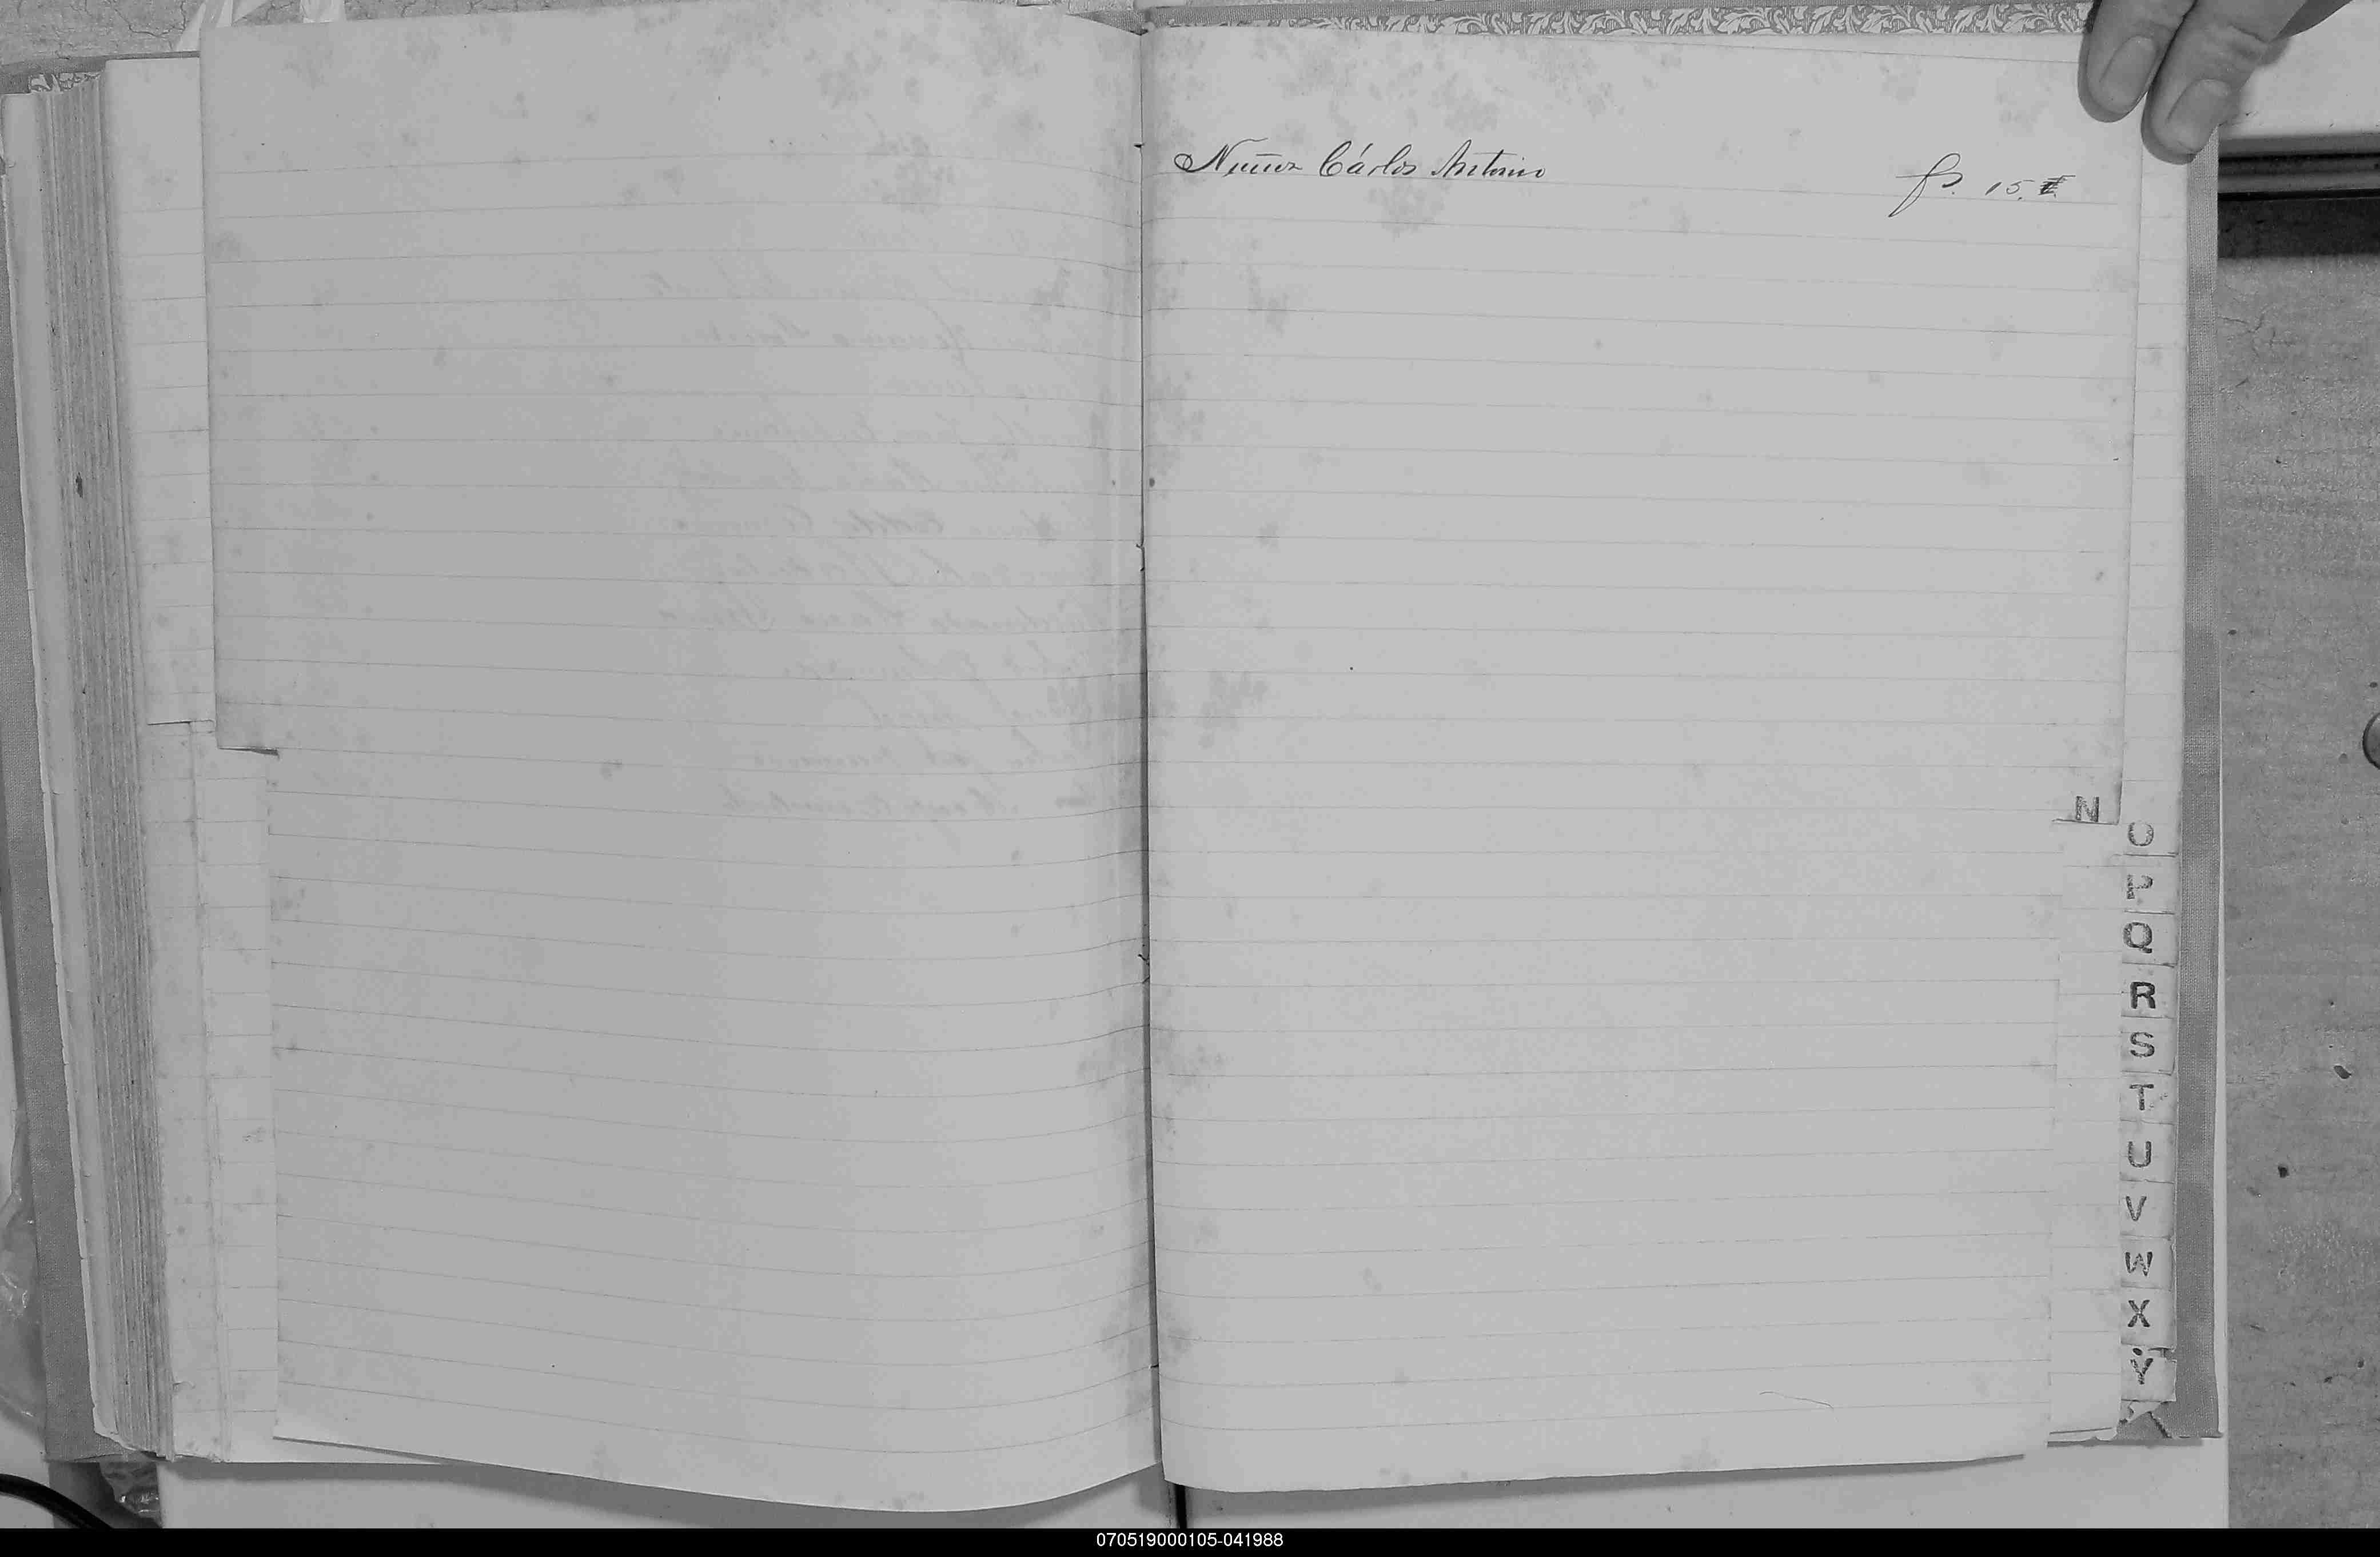 Nuñez Cárlos Antonio
fs. 15.
N
O
P
Q
R
S
T
U
V
W
X
Y
070519000105-041988